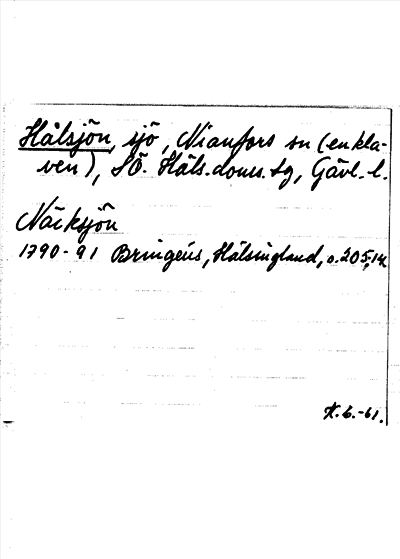 Hålsjön, sjö, Nianfors sn (enkla-
ven), SÖ. Häls. doms. tg, Gävl. l.
Näcksjön
1790-91 Bringéus, Hälsingland, s. 205,
K. G. -61.